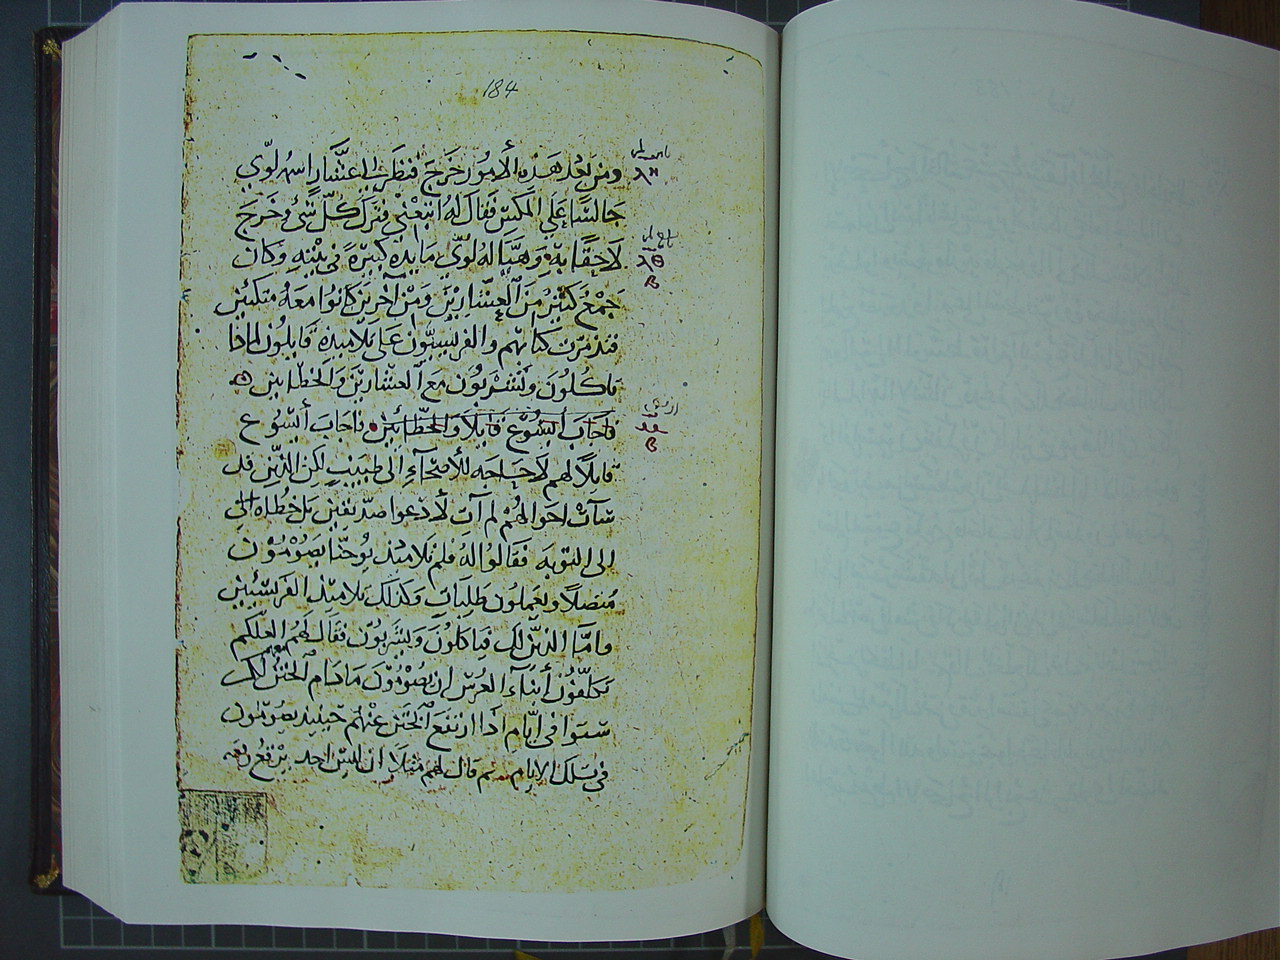 184
ومن بعد هذه الأمور خرج فنظر الى عشّار اسمه لوّي
جالسًا على المكس فقال له اتبعني فترك كلّ شئ وخرج
لاحقًا به وهيّا له لوّي مايده كبيرة في بيته وكان
جمع كثير من العشّارين ومن آخرين كانوا معه متكئين
فتذمّرت كتابهم والفريسيّون على تلاميذه قايلون لماذا
تاكلون وتشربون مع العشارين والخطايين
فأجاب أيسوع قايلًا والخطّائين فاجاب أيسوع
قايلًا لهم لا حاجه للأصحآء الى طبيب لكن الذين قد
سآت احوالهم لم آت لأدعوا صدّيقين بل خطاه
الى التوبه فقالوا له فلم تلاميذ يوحنّا يصومون
متصلًا ويعملون طلبات وكذلك تلاميذ الفريسّيين
وامّا الذين لك فياكلون ويشربون فقال لهم العلّكم
تكلّفون أبنآء العرس ان يصومون مادام الختن
ستوا في ايّام اذا ارتفع الختن عنهم حينيذ يصومون
في تلك الايام ثم قال لهم مثلًا ان ليس احد يرقع رقعه